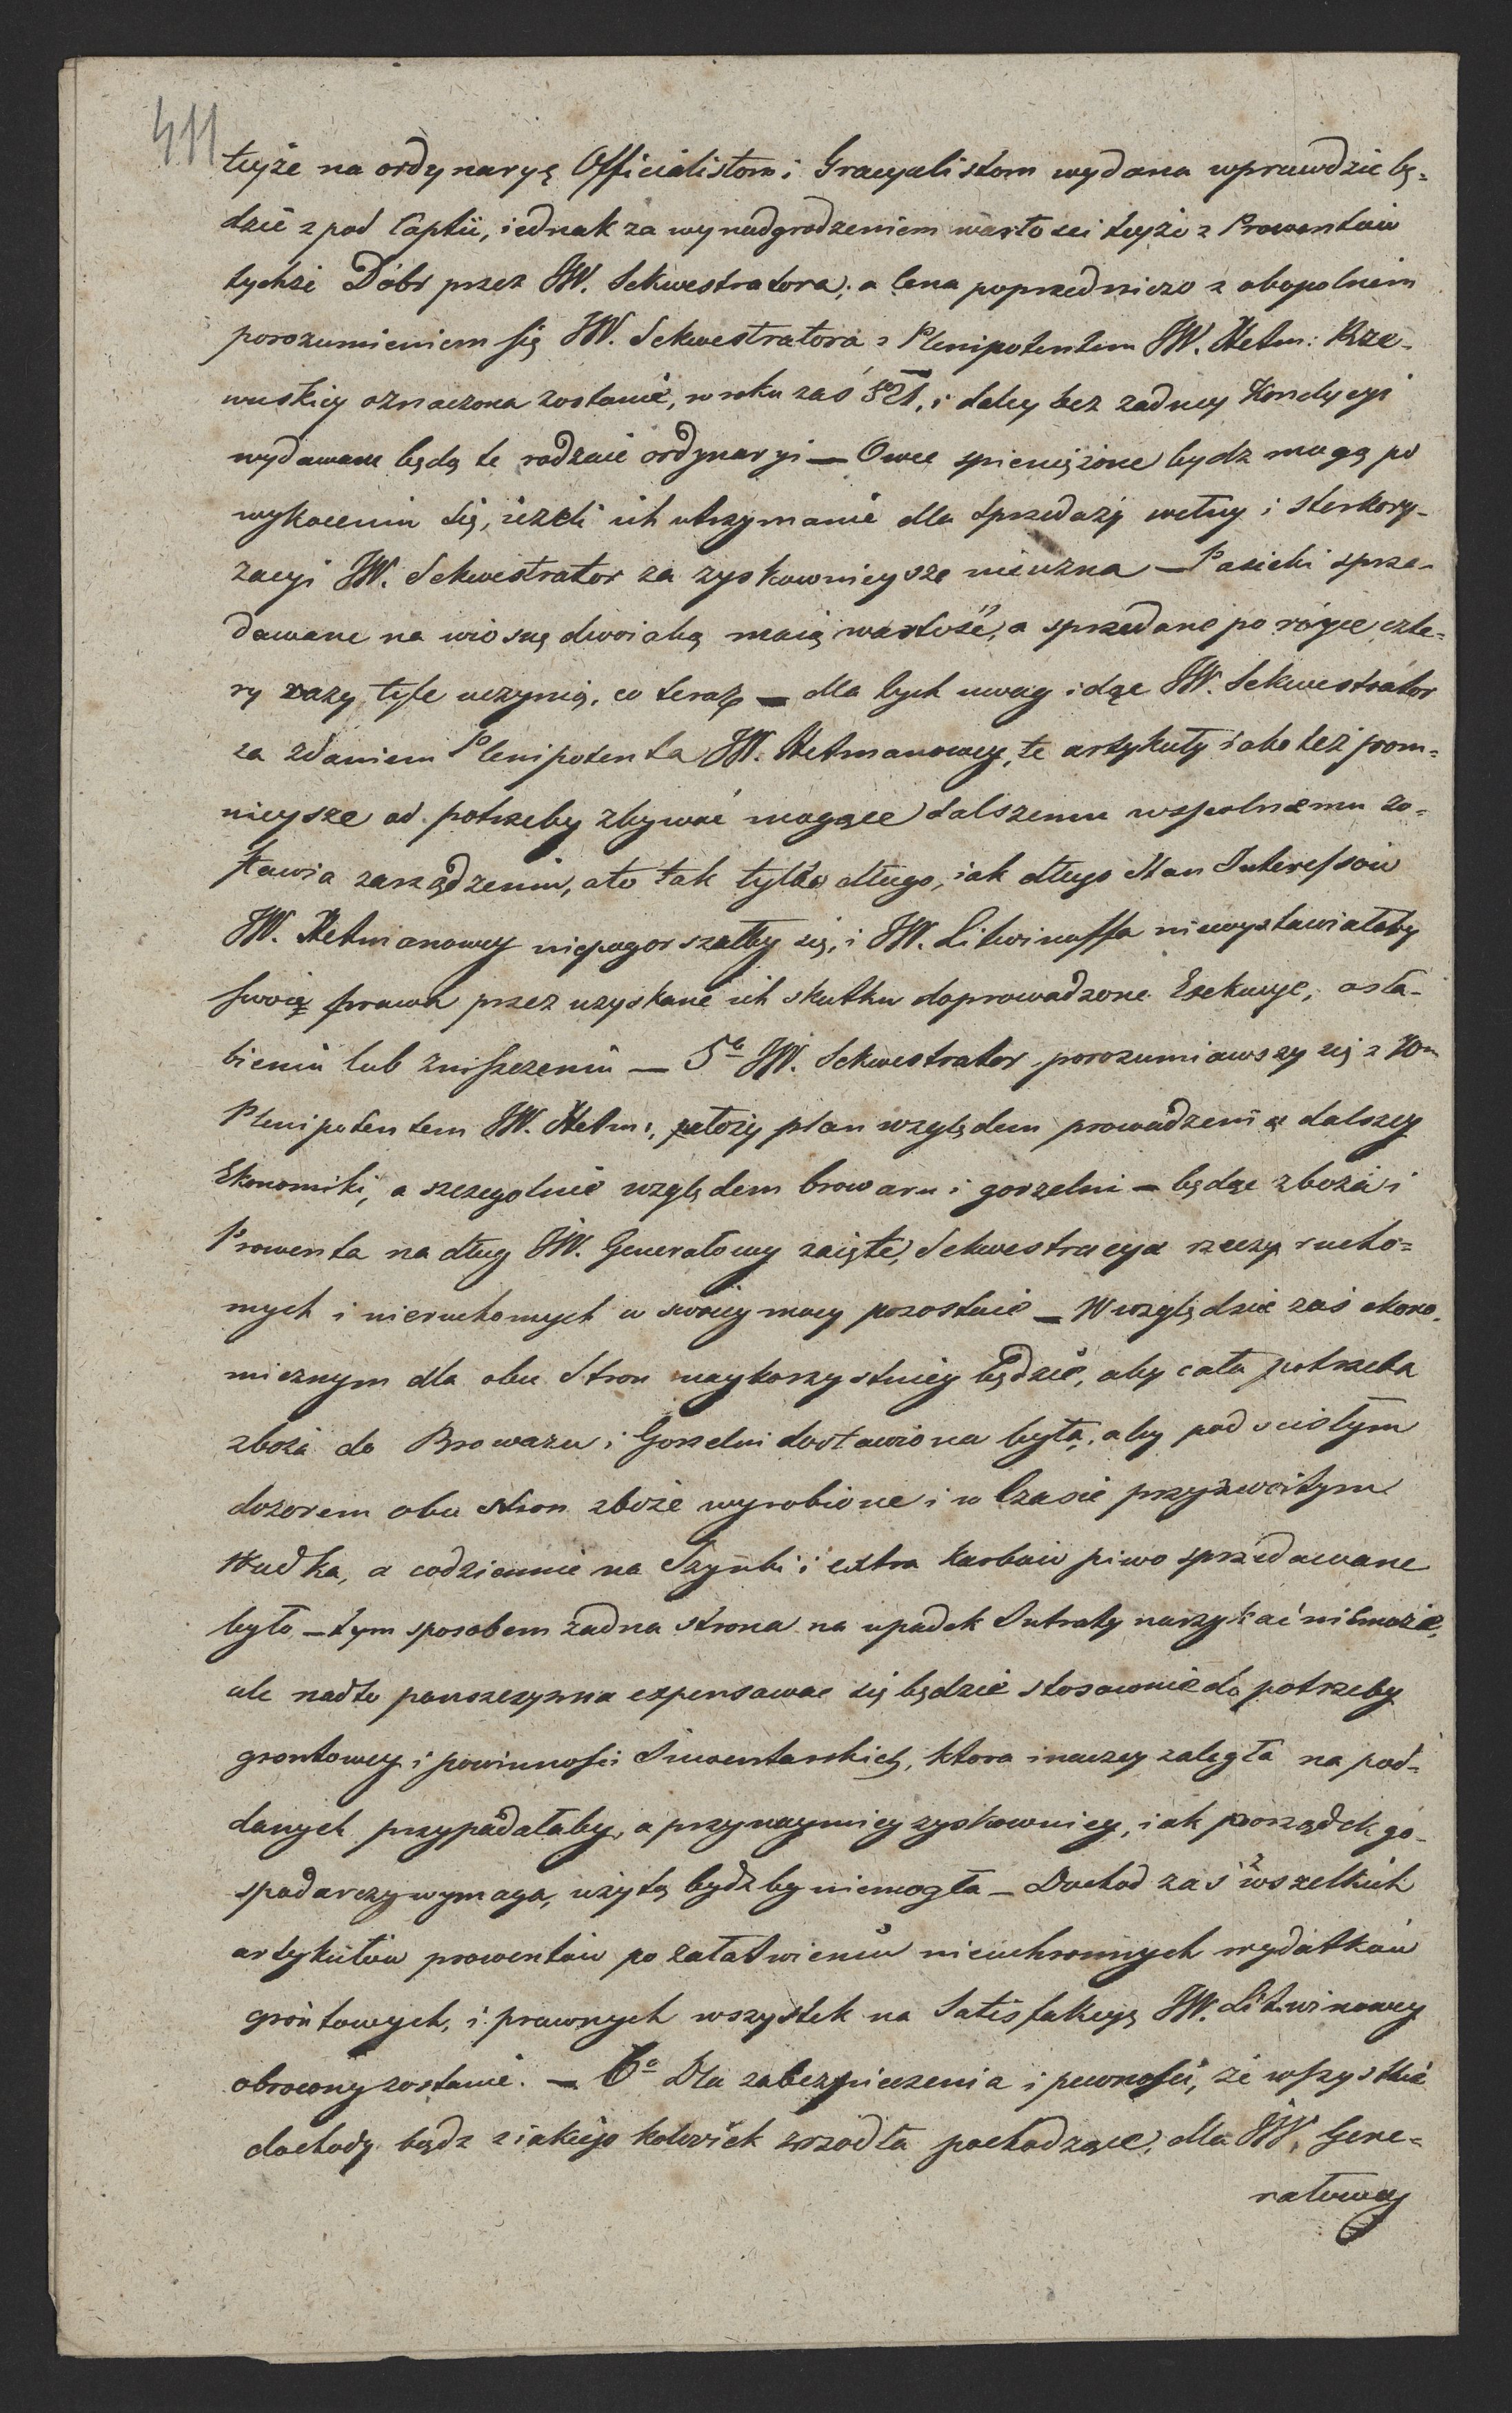 411
tejże na ordynaryą Officialistom i Gracyalistom wydana wprawdzie bę=
dzie z pod Captii, iednak za wynadgrodzeniem wartosci teyże z Prowentów
tychże Dóbr przez JW. Sekwestratora; a Cena poprzedniczo z obopolnem
porozumieniem się JW. Sekwestratora z Plenipotentem JW. Hetm: Rze-
wuskiey oznaczona zostanie, w roku zaś i daley bez żadney Kondycyi
wydawane będą te rodzaie ordynaryi — Owce spieniężone bydz mogą po
wykoceniu się, ieżeli ich utrzymanie dla sprzedaży wełny i sterkory-
zacyi JW. Sekwestrator za zyskownieysze nieuzna — Pasieki sprze-
dawane na wiosnę dwoiaką maią wartość, a sprzedane po róyce czte=
ry razy tyle uczynią, co teraz — dla tych uwag idąc JW. Sekwestrator
za zdaniem Plenipotenta JW. Hetmanowey, te artykuły iako też pom=
nieysze od potrzeby zbywać mogące dalszemu wspolnemu zo=
stawia zarządzeniu, ato tak tylko długo, iak długo Stan Interessów
JW. Hetmanowey niepogorszałby się, i JW. Litwinoffa niewystawiałaby
swoię prawa przez uzyskane ich skutku doprowadzone Exekucye, osła-
bieniu lub zniszczeniu — 5° JW. Sekwestrator porozumiawszy się z
Plenipotentem JW. Hetm:, ułoży plan względem prowadzenia dalszey
Ekonomiki, a szczegolnie względem browaru i gorzelni — będąc zboża i
Prowenta na dług JW. Generałowey zaięte, Sekwestracya rzeczy rucho=
mych i nieruchomych w swoiey mocy pozostaie — W względzie zaś ekono.
micznym dla obu Stron naykorzystniey będzie, aby cała potrzeba
zboża do Browaru i Gorzelni dostawiona była, aby pod scisłym
dozorem obu stron zboże wyrobione i w Czasie przyzwoitym
Wudka, a codziennie na Szynki i extra karbów piwo sprzedawane
było — tym sposobem żadna strona na upadek Intraty narzykać niemoże,
ale nadto panszczyzna expensować się będzie stosownie do potrzeby
grontowey i powinnosci Inwentarskiey, ktora inaczey zaległa na pod=
danych przypadałaby, a przynaymniey zyskowniey, iak porządek go-
spodarczy wymaga, użytą bydź by niemogła — Dochod zaś z wszelkich
artykułów prowentów po załatwieniu nieuchronnych wydatków
gróntowych, i prawnych wszystek na Satisfakcyą JW. Litwinowey
obrocony zostanie. — 6° Dla zabezpieczenia i pewnosci, że wszystkie
dochody bądz z iakiego kolwiek zrzodła pochodzące, dla JW. Gene=
rałowey